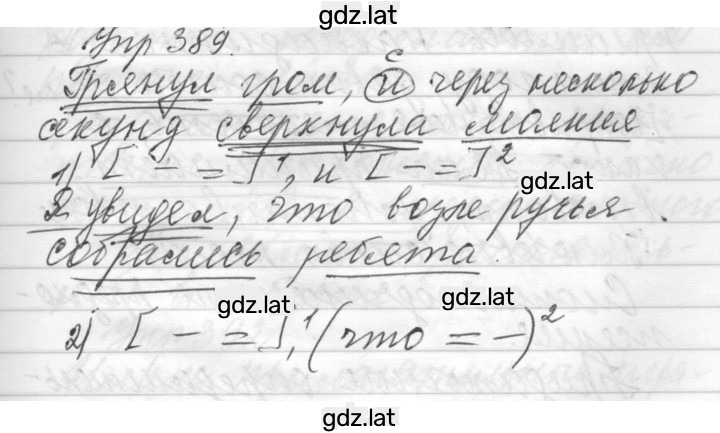 gdz.lat
Упр 389.
Грянул гром, и через несколько
с
секунд сверкнула молния
1) [ – = ]¹, и [ – = ]²
gdz.lat
Я увидел, что возле ручья
собрались ребята.
gdz.lat
gdz.lat
2) [ – = ],¹ (что = –)²
gdz.lat